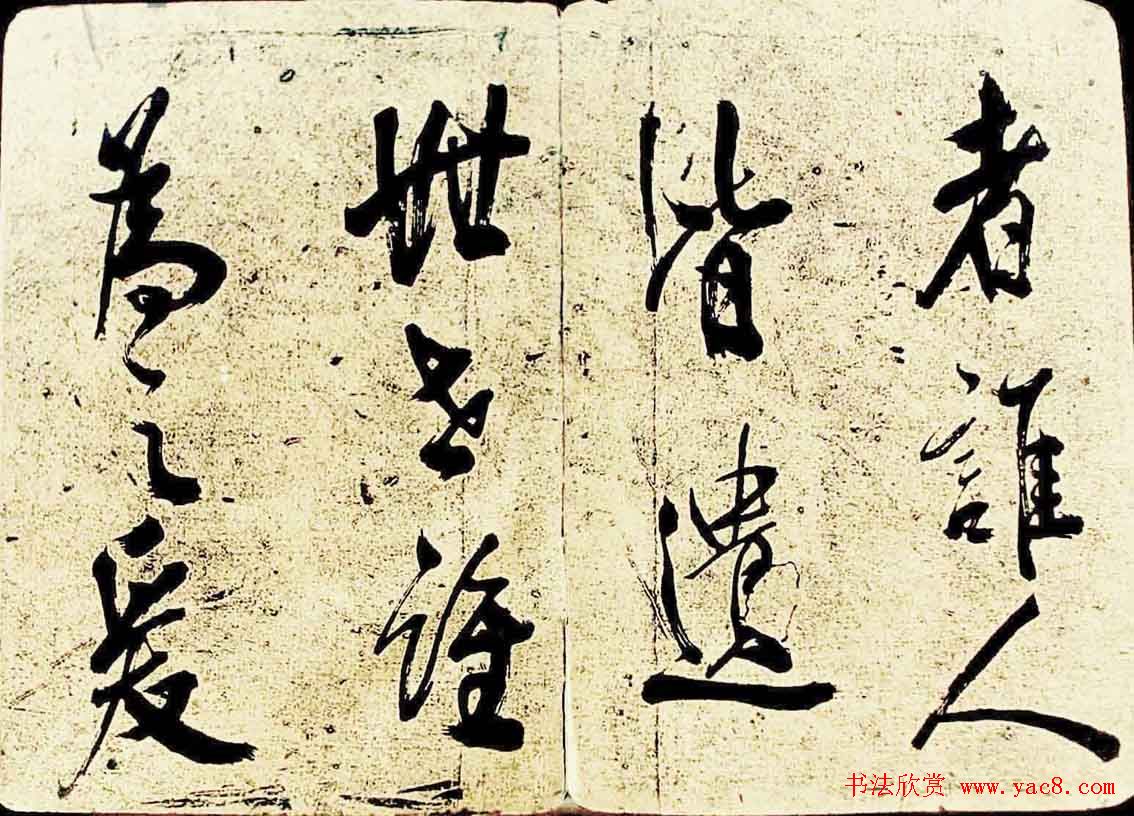 者誰人
皆遺
世世誰
為之爰
书法欣赏 www.yac8.com